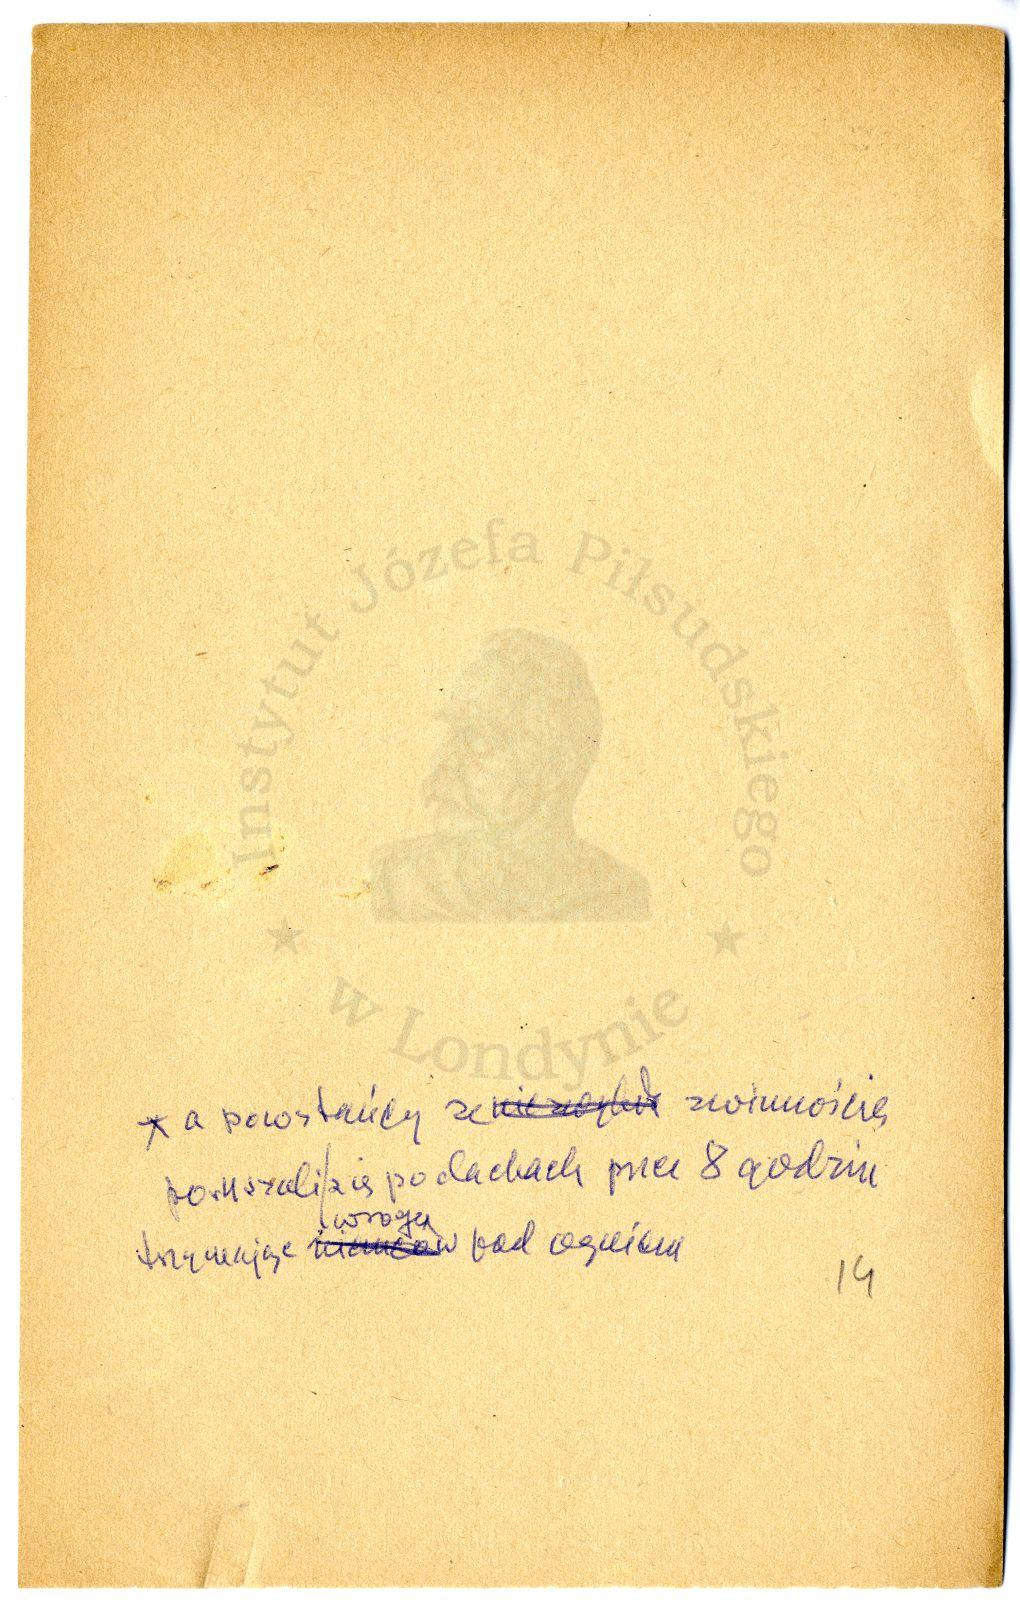 Instytut Józefa Piłsudskiego
w Londynie
* a powstańcy ze niezwykłą zwinnością
poruszali się po dachach przez 8 godzin
wroga
trzymając niemców pod ogniem
14